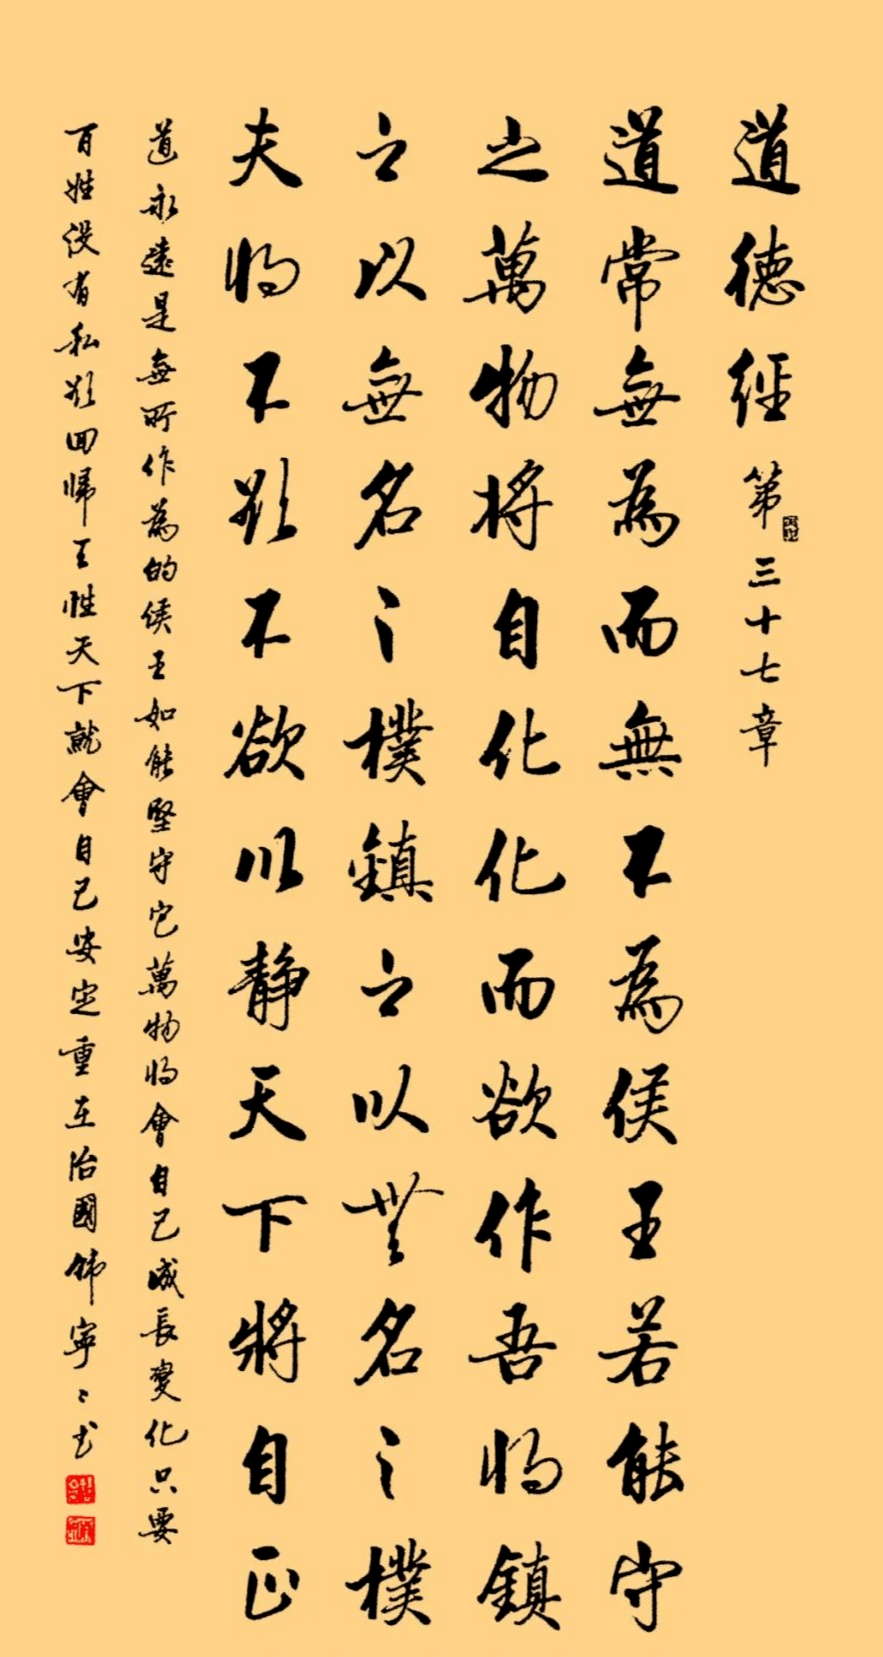 道德經 第三十七章
道常無為而無不為侯王若能守
之萬物將自化化而欲作吾將鎮
之以無名之樸鎮之以無名之樸
夫將不欲不欲以静天下將自正
道永遠是無所作為的侯王如能堅守它萬物將會自己成長變化只要
百姓没有私欲回歸王性天下就會自己安定重在治國寧〻书